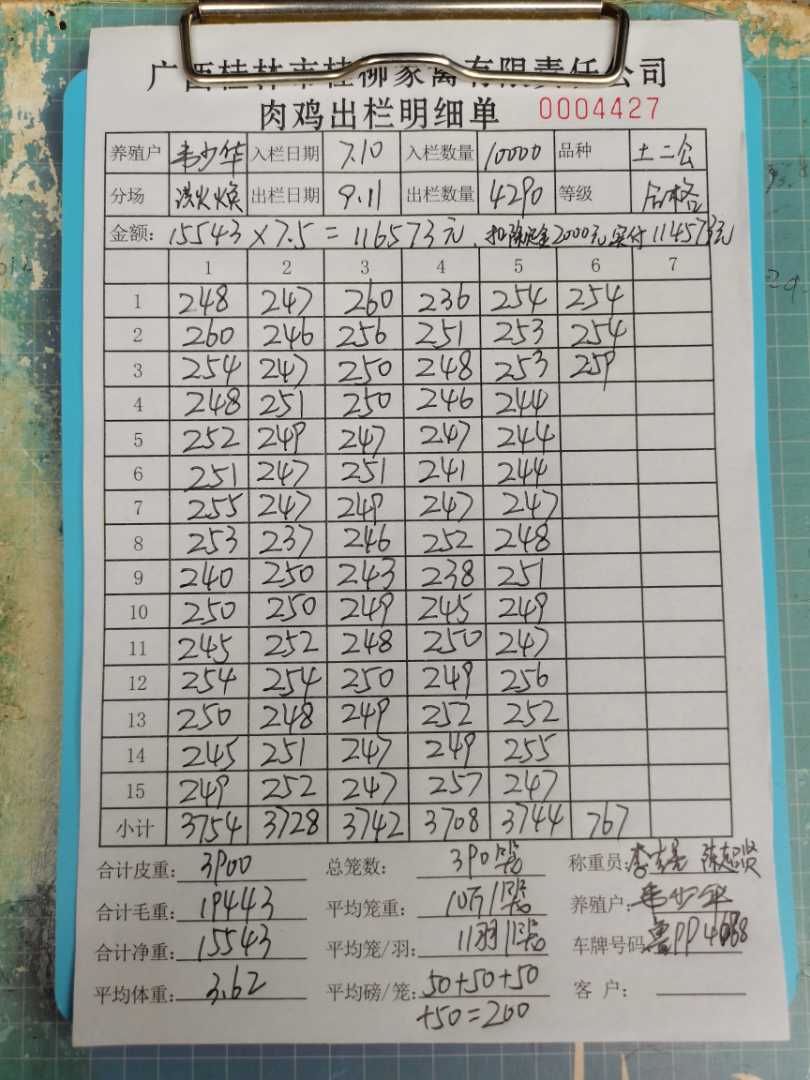 广西桂林市桂柳家禽有限责任公司
肉鸡出栏明细单 0004427
养殖户 韦少华 入栏日期 7.10 入栏数量 10000 品种 土二公
分场 出栏日期 9.11 出栏数量 4290 等级 合格
金额: 15543×7.5=116573元. 扣除定金2000元实付114573元
1 2 3 4 5 6 7
1 248 247 260 236 254 254
2 260 246 256 251 253 254
3 254 247 250 248 253 259
4 248 251 250 246 244
5 252 249 247 247 244
6 251 247 251 241 244
7 255 247 249 247 247
8 253 237 246 252 248
9 240 250 243 238 251
10 250 250 249 245 249
11 245 252 248 250 247
12 254 254 250 249 256
13 250 248 249 252 252
14 245 251 247 249 255
15 249 252 247 257 247
小计 3754 3728 3742 3708 3744 767
合计皮重: 3900 总笼数: 390笼 称重员:
合计毛重: 19443 平均笼重: 10斤/笼 养殖户: 韦少华
合计净重: 15543 平均笼/羽: 11羽/笼 车牌号码:
平均体重: 3.62 平均磅/笼: 50+50+50 客 户:
+50=200